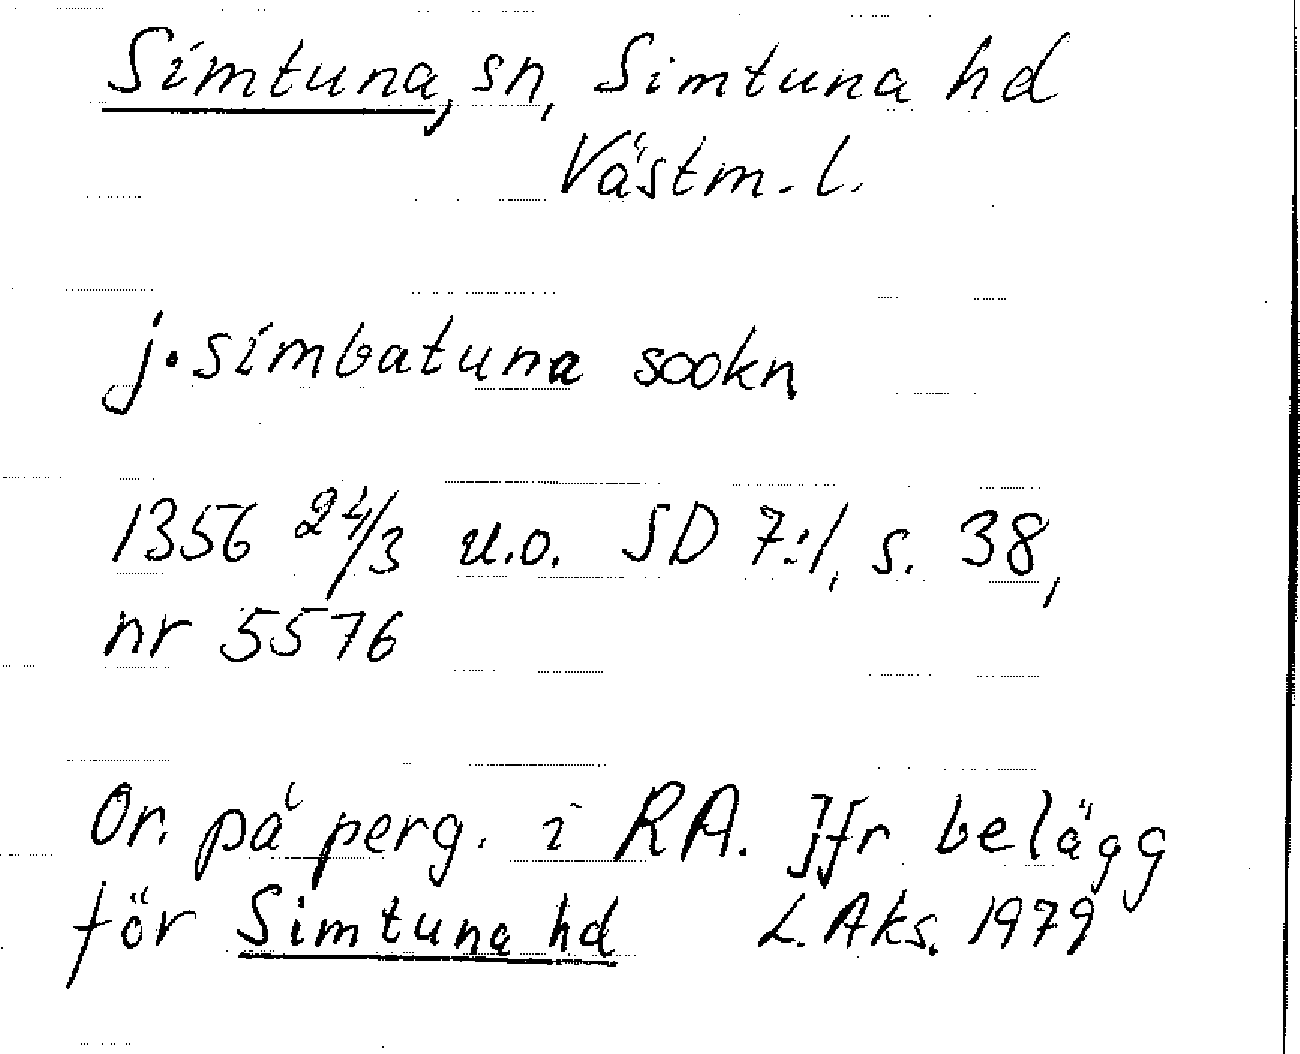 Simtuna, sn, Simtuna hd
Västm. l.
j. simbatuna sookn
1356 24/3 u.o. SD 7:1, s. 38,
nr 5576
Or. på perg. i RA. Jfr belägg
för Simtuna hd L. Aks. 1979